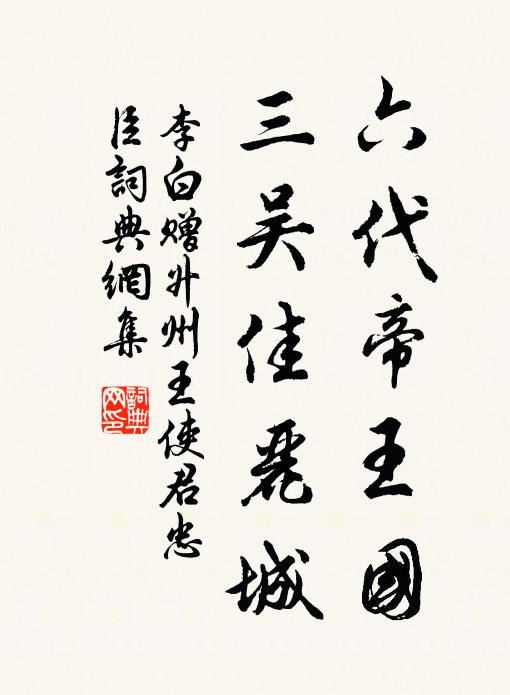 六代帝王國
三吳佳麗城
李白贈升州王使君忠
臣詞典網集
詞典網印